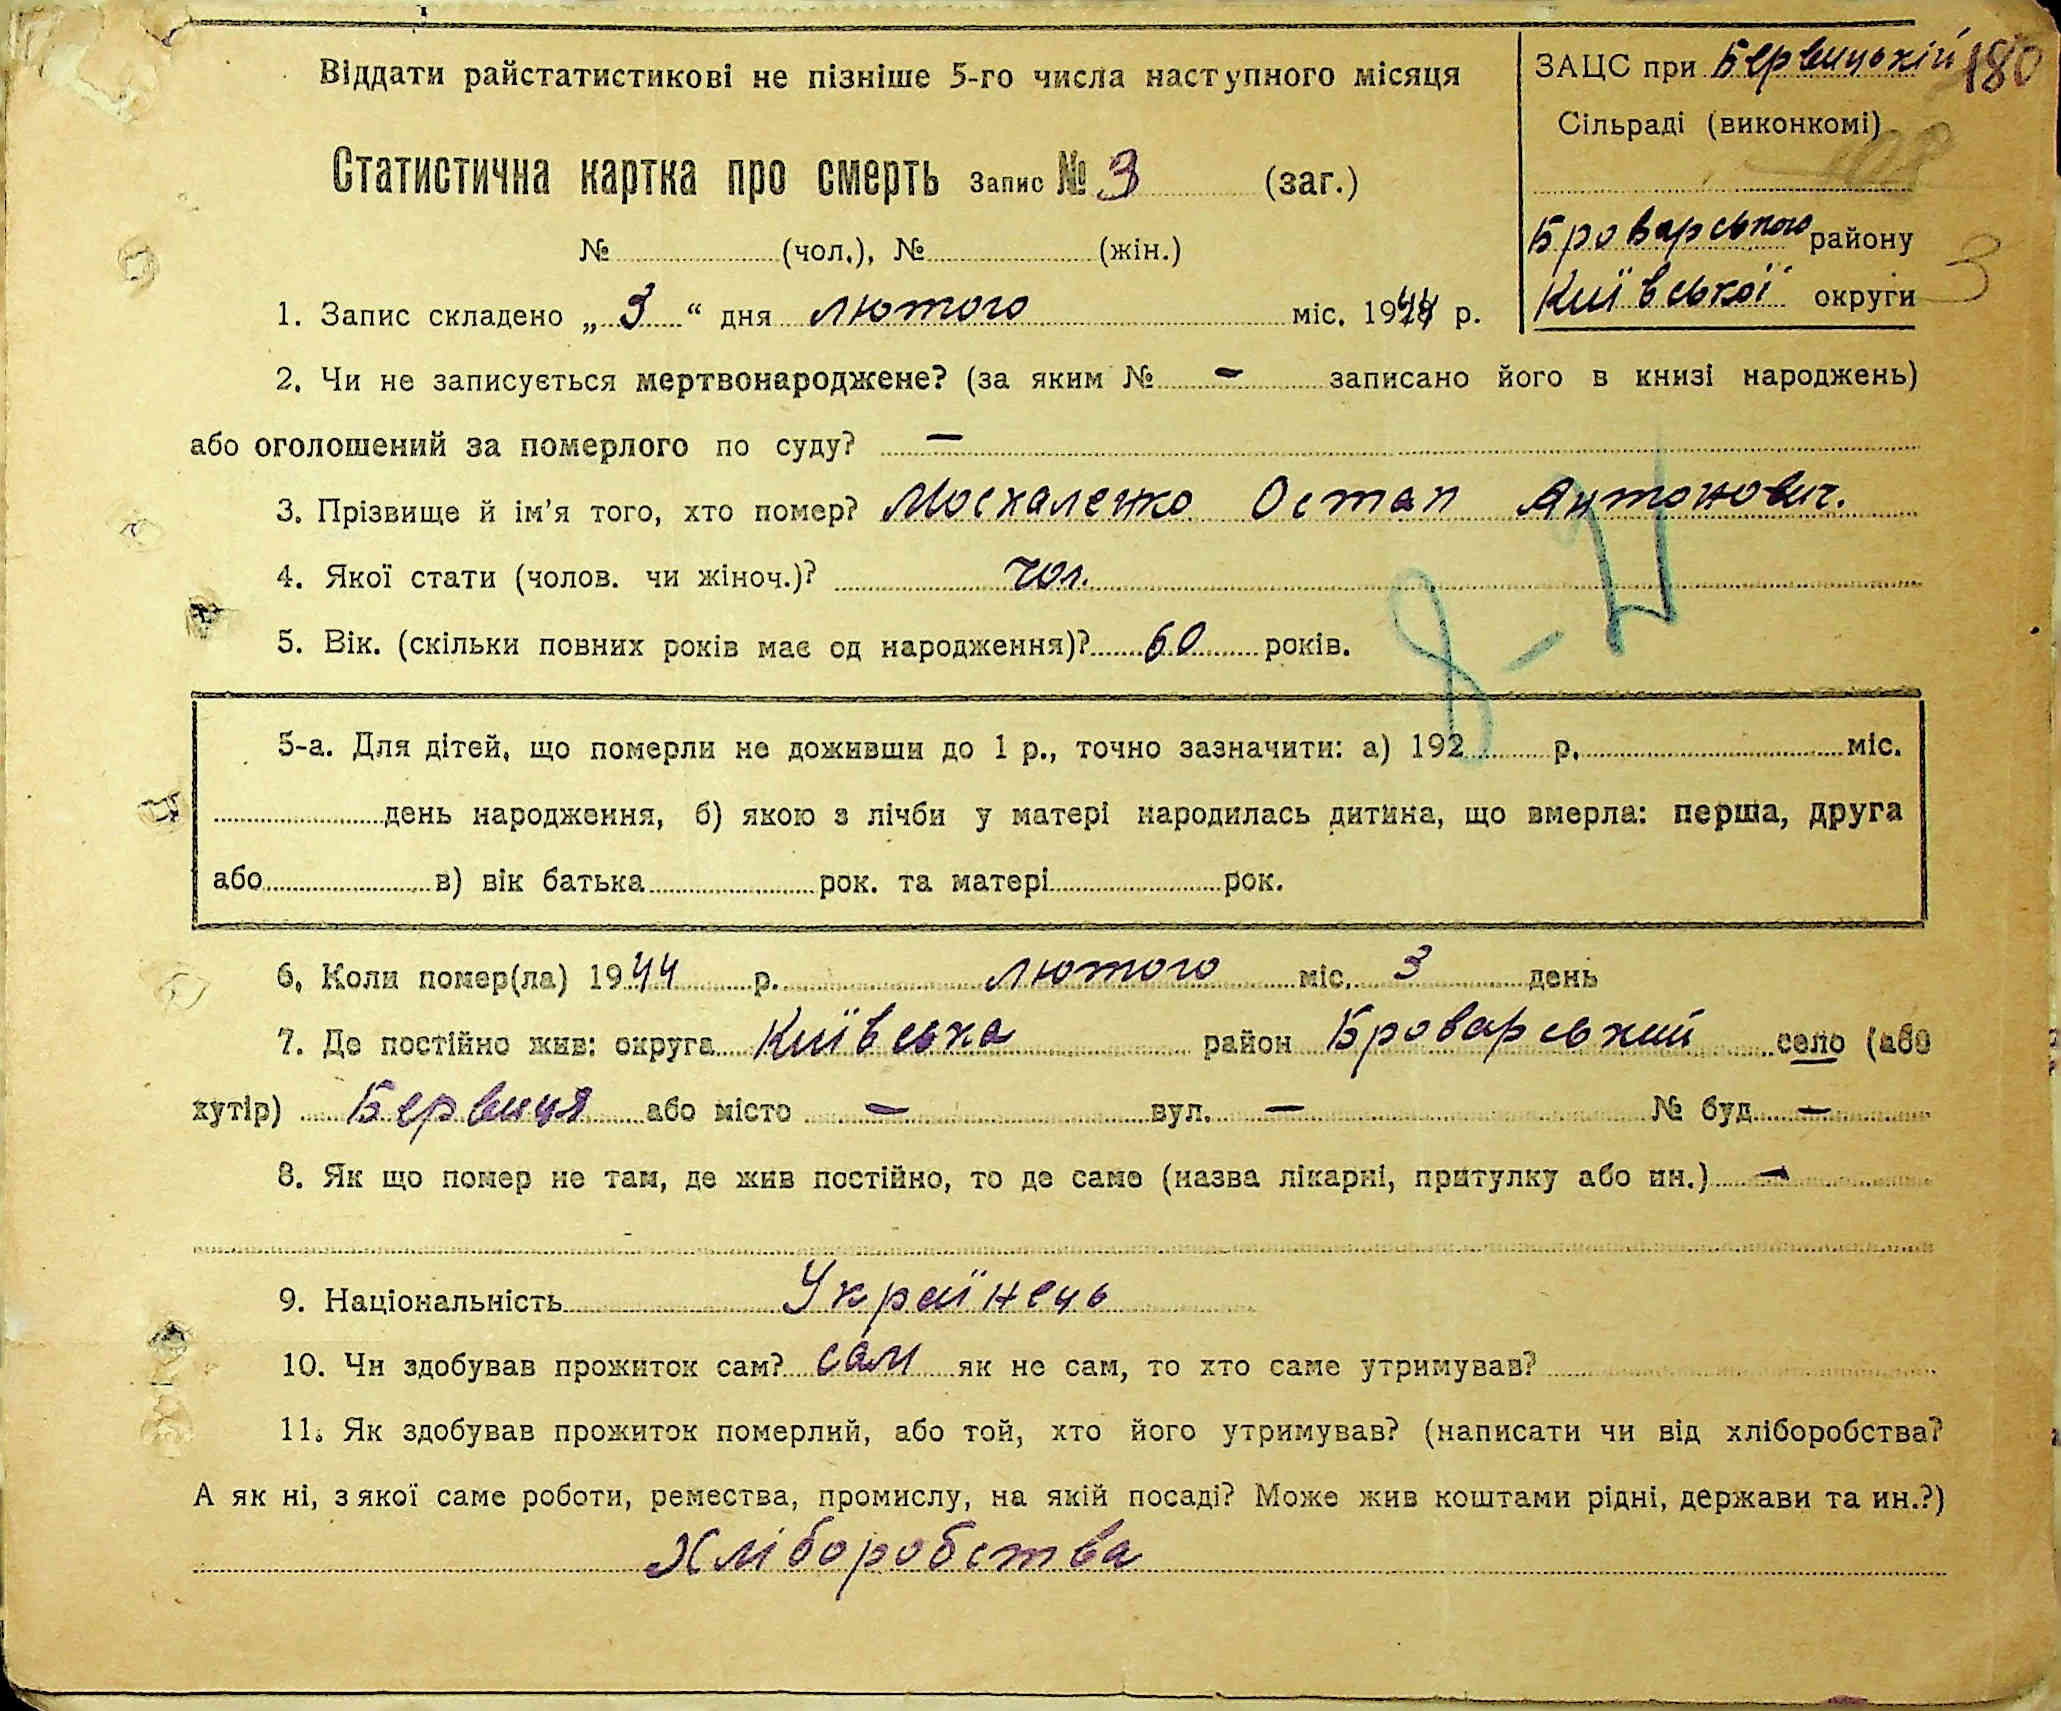 Віддати райстатистикові не пізніше 5-го числа наступного місяця
ЗАЦС при Бервицькій 180
Сільраді (виконкомі)
108
Броварського району
Київської округи 3
Статистична картка про смерть Запис № 3 (заг.)
№ (чол.), № (жін.)
1. Запис складено „3“ дня лютого міс. 1944 р.
2. Чи не записується мертвонароджене? (за яким № – записано його в книзі народжень)
або оголошений за померлого по суду? –
3. Прізвище й ім'я того, хто помер? Москаленко Остап Антонович.
4. Якої стати (чолов. чи жіноч.)? чол.
5. Вік. (скільки повних років має од народження)? 60 років.
5-а. Для дітей, що померли не доживши до 1 р., точно зазначити: а) 192 р. міс.
день народження, б) якою з лічби у матері народилась дитина, що вмерла: перша, друга
або в) вік батька рок. та матері рок.
6. Коли помер(ла) 1944 р. лютого міс. 3 день
7. Де постійно жив: округа Київська район Броварський село (або
хутір) Бервиця або місто – вул. – № буд. –
8. Як що помер не там, де жив постійно, то де саме (назва лікарні, притулку або ин.) –
9. Національність Українець
10. Чи здобував прожиток сам? сам як не сам, то хто саме утримував?
11. Як здобував прожиток померлий, або той, хто його утримував? (написати чи від хліборобства?
А як ні, з якої саме роботи, ремества, промислу, на якій посаді? Може жив коштами рідні, держави та ин.?)
Хліборобства